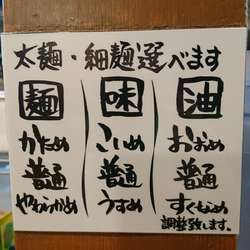 太麺・細麺選べます
麺 味 油
かため こいめ おおめ
普通 普通 普通
やわらかめ うすめ すくなめ
調整致します。